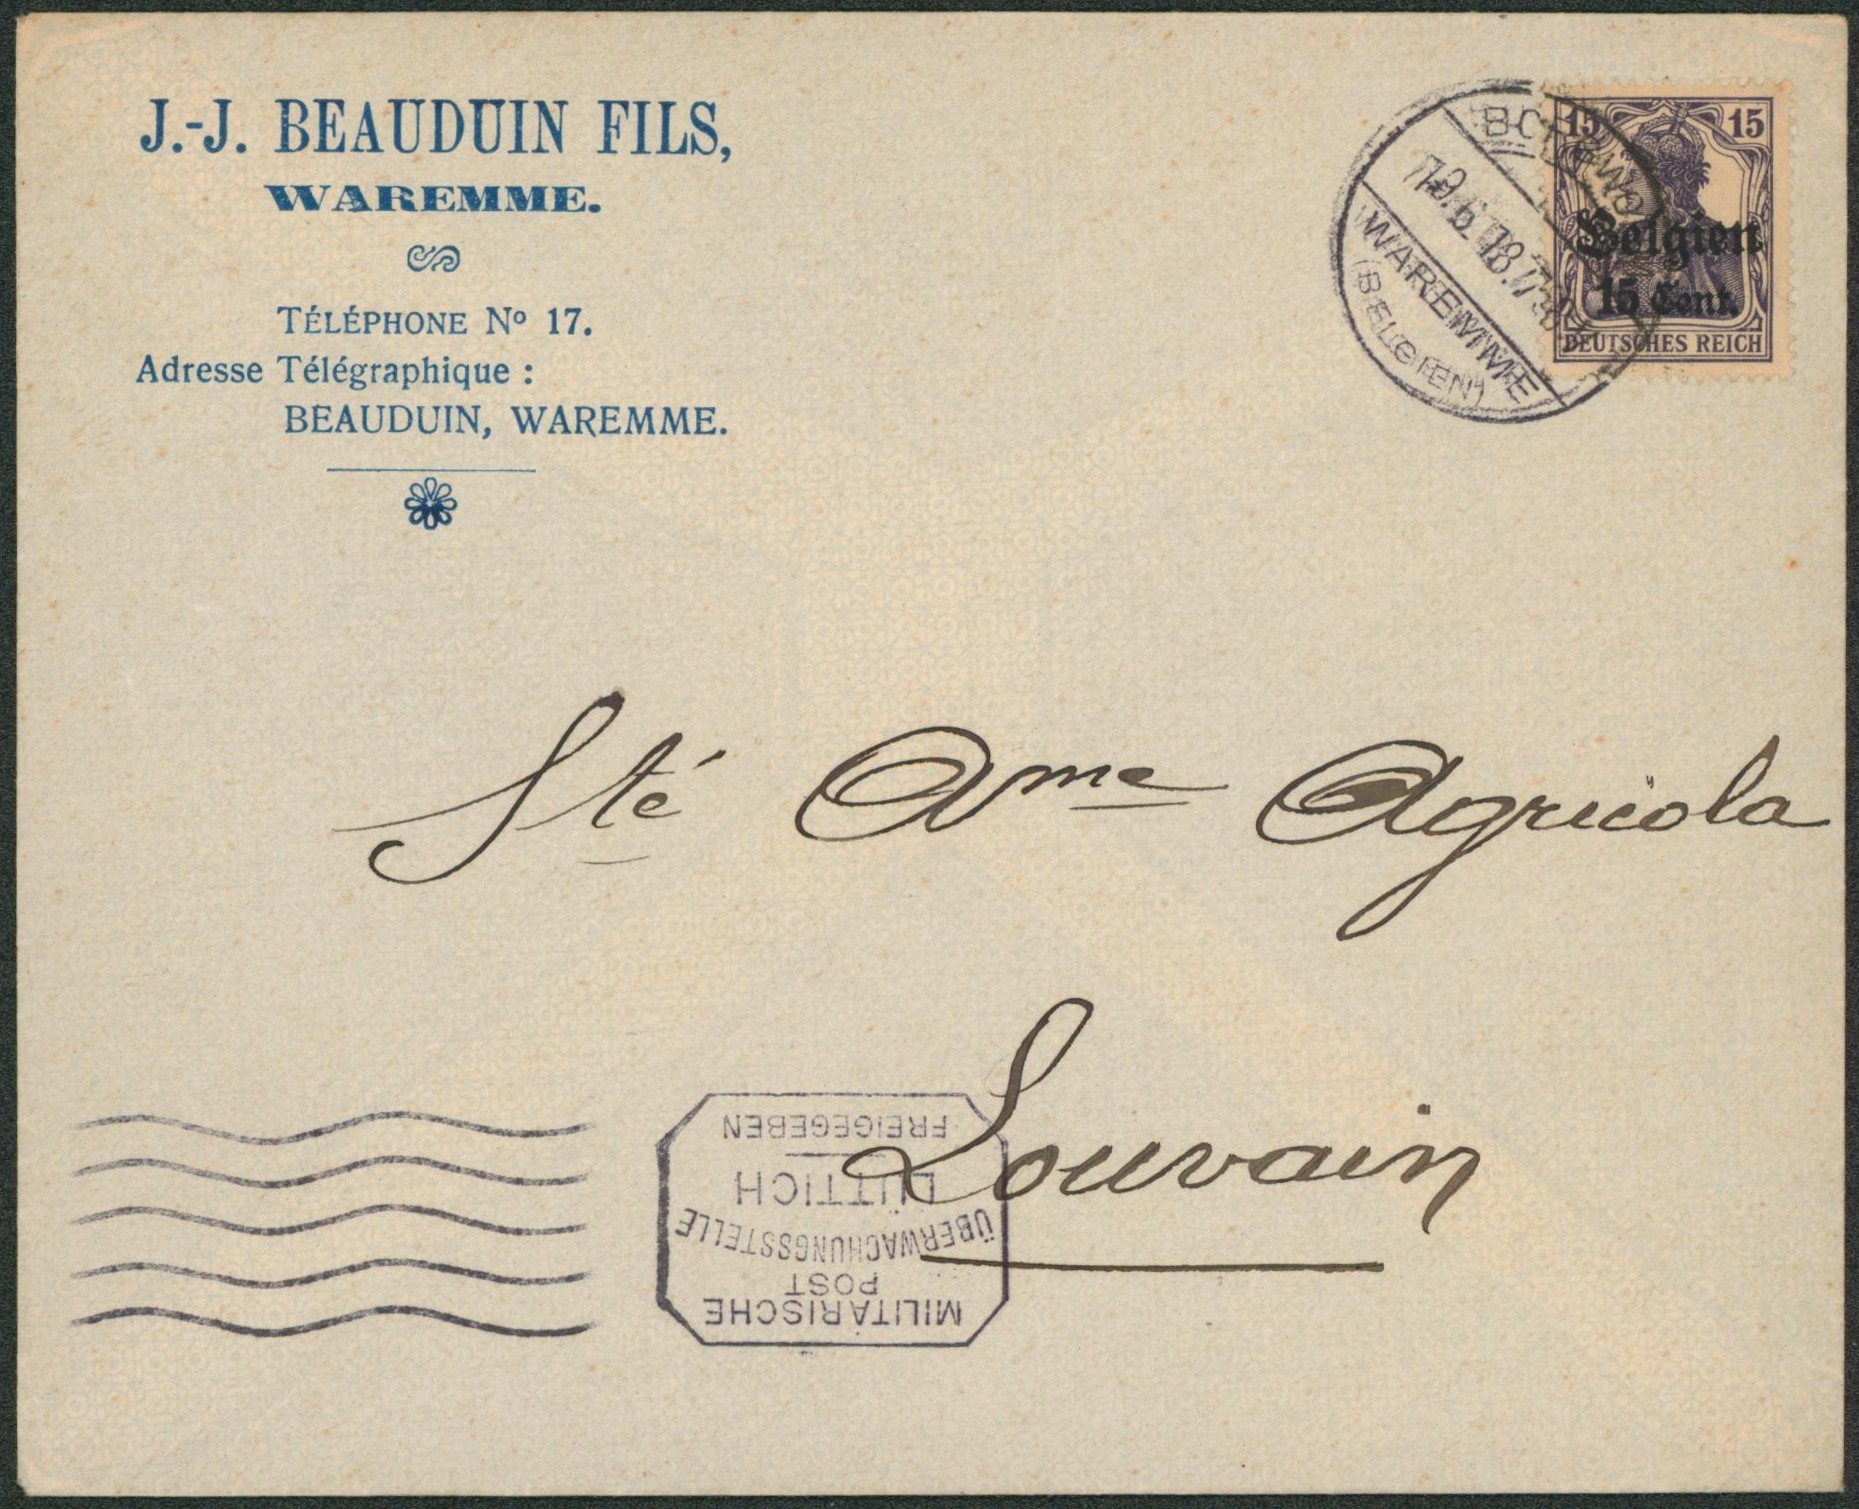 J.-J. BEAUDUIN FILS,
WAREMME.
TÉLÉPHONE Nº 17.
Adresse Télégraphique :
BEAUDUIN, WAREMME.
15 15
Belgien
15 Cent.
DEUTSCHES REICH
WAREMME
(BELGIEN)
Sté Ame Agricola
Louvain
MILITÄRISCHE
POST
ÜBERWACHUNGSSTELLE
LÜTTICH
FREIGEGEBEN